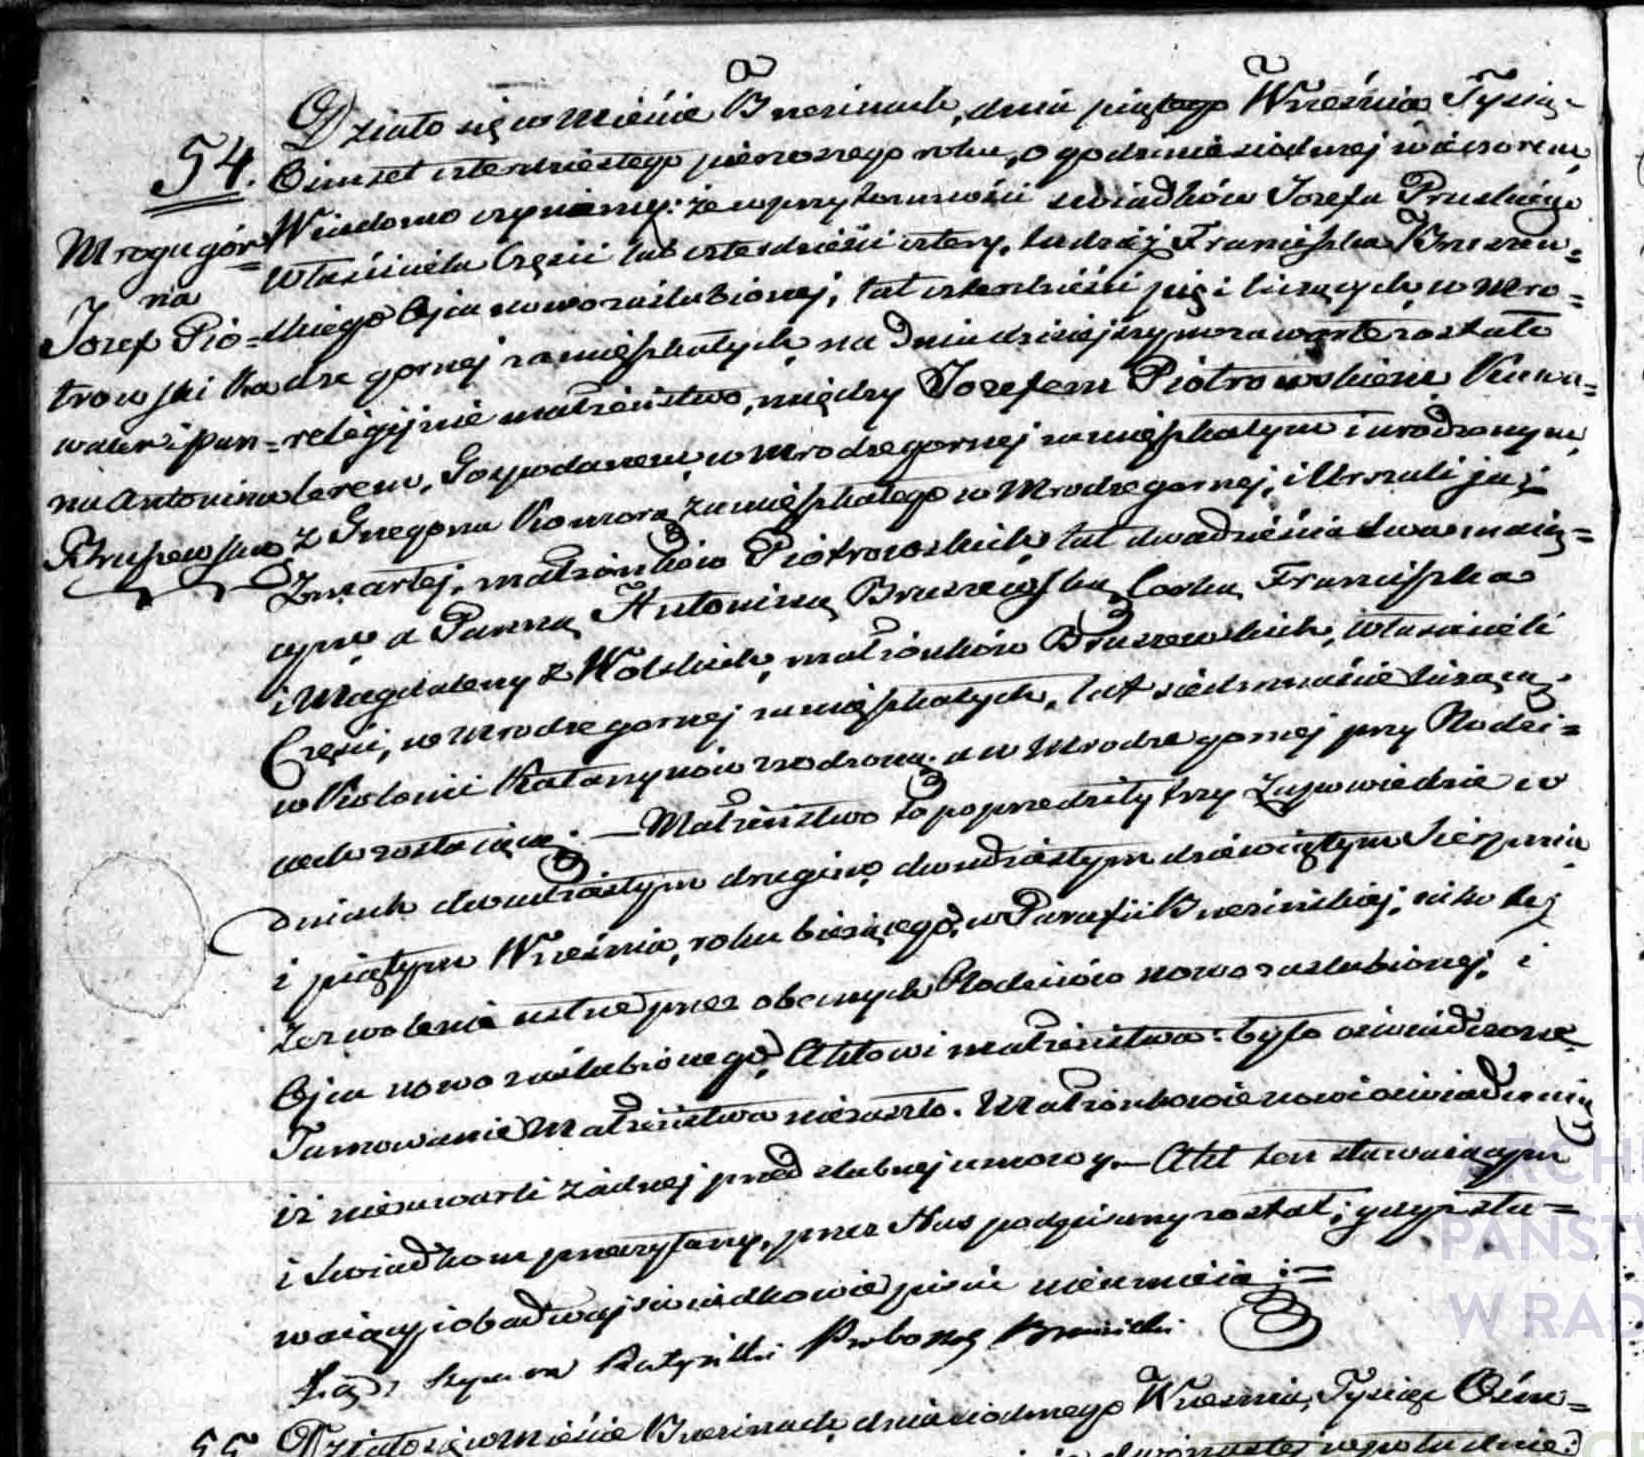 Działo się w Mieście Brzezinach, dnia piątego Września Tysiąc
54. Ośmset czterdziestego pierwszego roku, o godzinie siódmej wieczorem,
Wiadomo czyniemy: że w przytomności świadków Jozefa Pruskiego
Mroga gór= Właściciela Części lat czterdzieści cztery, tudzież Franciszka Bruszew=
na skiego Ojca nowozaślubionej, lat czterdzieści pięć liczących, w Mro=
Jozef Pio= dze gornej zamięszkałych, na dniu dzisiejszym zawarte zostało
trowski Ka religijnie małżeństwo, między Jozefem Piotrowskiem Kawa=
waler i Pan= lerem, Gospodarzem, w Mrodze gornej zamięszkałym i urodzonym,
na Antonina z Grzegorza Komora zamięszkałego w Mrodze gornej, i Urszuli już
Bruszewska Zmarłej, małżonków Piotrowskich, lat dwadzieścia dwa mają=
cym a Panną Antoniną Bruszewską, Corką Franciszka
i Magdaleny z Wolskich, małżonków Bruszewskich, Właścicieli
Części, w Mrodze gornej zamięszkałych, lat siedmnaście liczącą,
w Kolonii Katarzynów zrodzoną, a w Mrodze gornej przy Rodzi=
cach zostającą. — Małżeństwo to poprzedziły trzy Zapowiedzie w
dniach dwudziestym drugim, dwudziestym dziewiątym Sierpnia
i piątym Września, roku bieżącego, w Parafii Brzezińskiej, jako też
Zezwolenie ustne przez obecnych Rodziców nowozaślubionej, i
Ojca nowozaślubionego, Aktowi małżeństwa: było oświadczone.
Tamowanie Małżeństwa niezaszło. Małżonkowie nowi oświadczają
iż niezawarli żadnej przedślubnej umowy. — Akt ten stawającym
i Świadkom przeczytany, przez Nas podpisany został; gdyż sta=
wający i obadwaj świadkowie pisać nieumieją :=
Proboszcz Brzeziński
55 Działo się w Mieście Brzezinach, dnia siódmego Września, Tysiąc Ośm=
ARCHI
PAŃSTW
W RAD